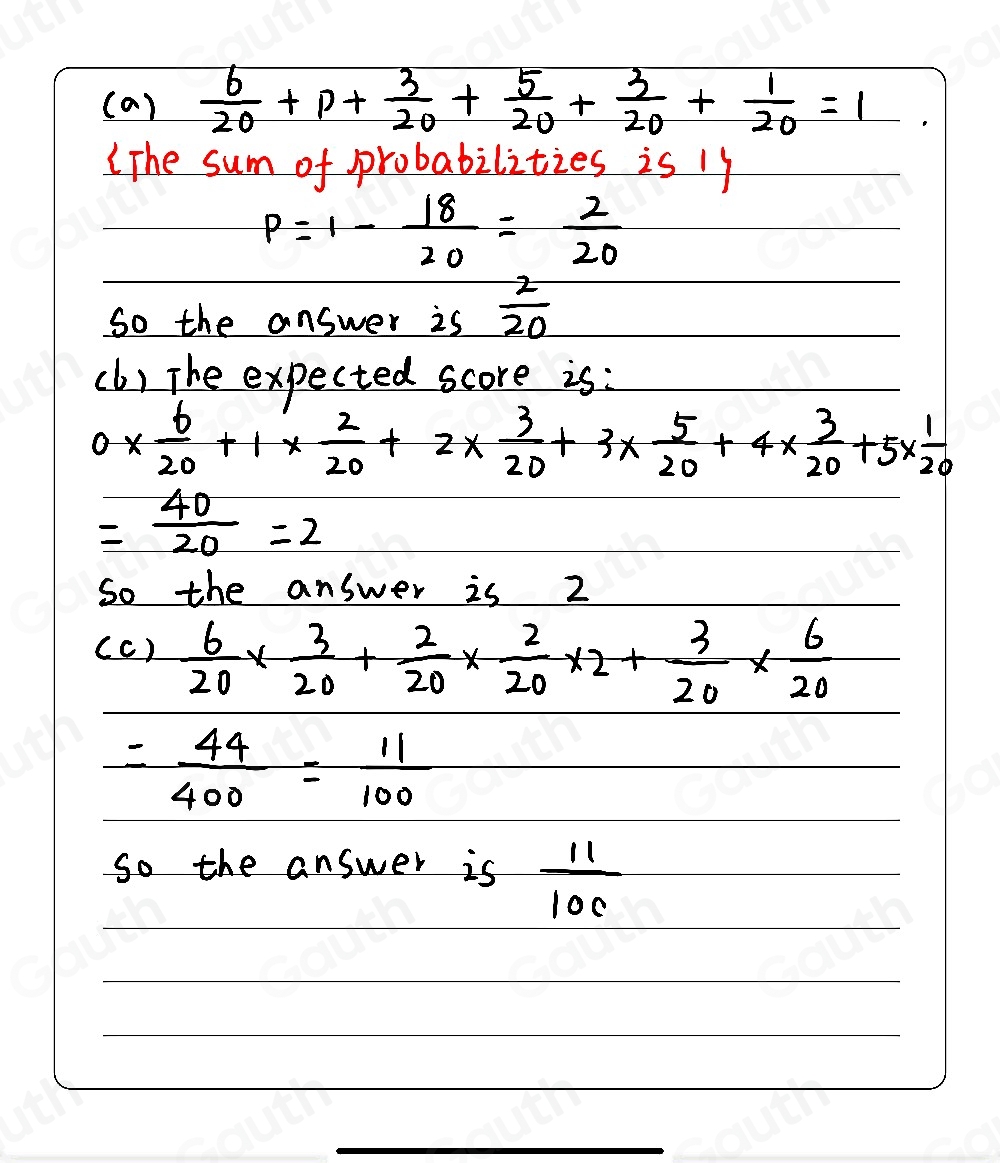 (a) 6/20 + P + 3/20 + 5/20 + 3/20 + 1/20 = 1 .
{The sum of probabilities is 1}
P = 1 - 18/20 = 2/20
So the answer is 2/20
(b) The expected score is:
0 × 6/20 + 1 × 2/20 + 2 × 3/20 + 3 × 5/20 + 4 × 3/20 + 5 × 1/20
= 40/20 = 2
So the answer is 2
(c) 6/20 × 3/20 + 2/20 × 2/20 × 2 + 3/20 × 6/20
= 44/400 = 11/100
So the answer is 11/100